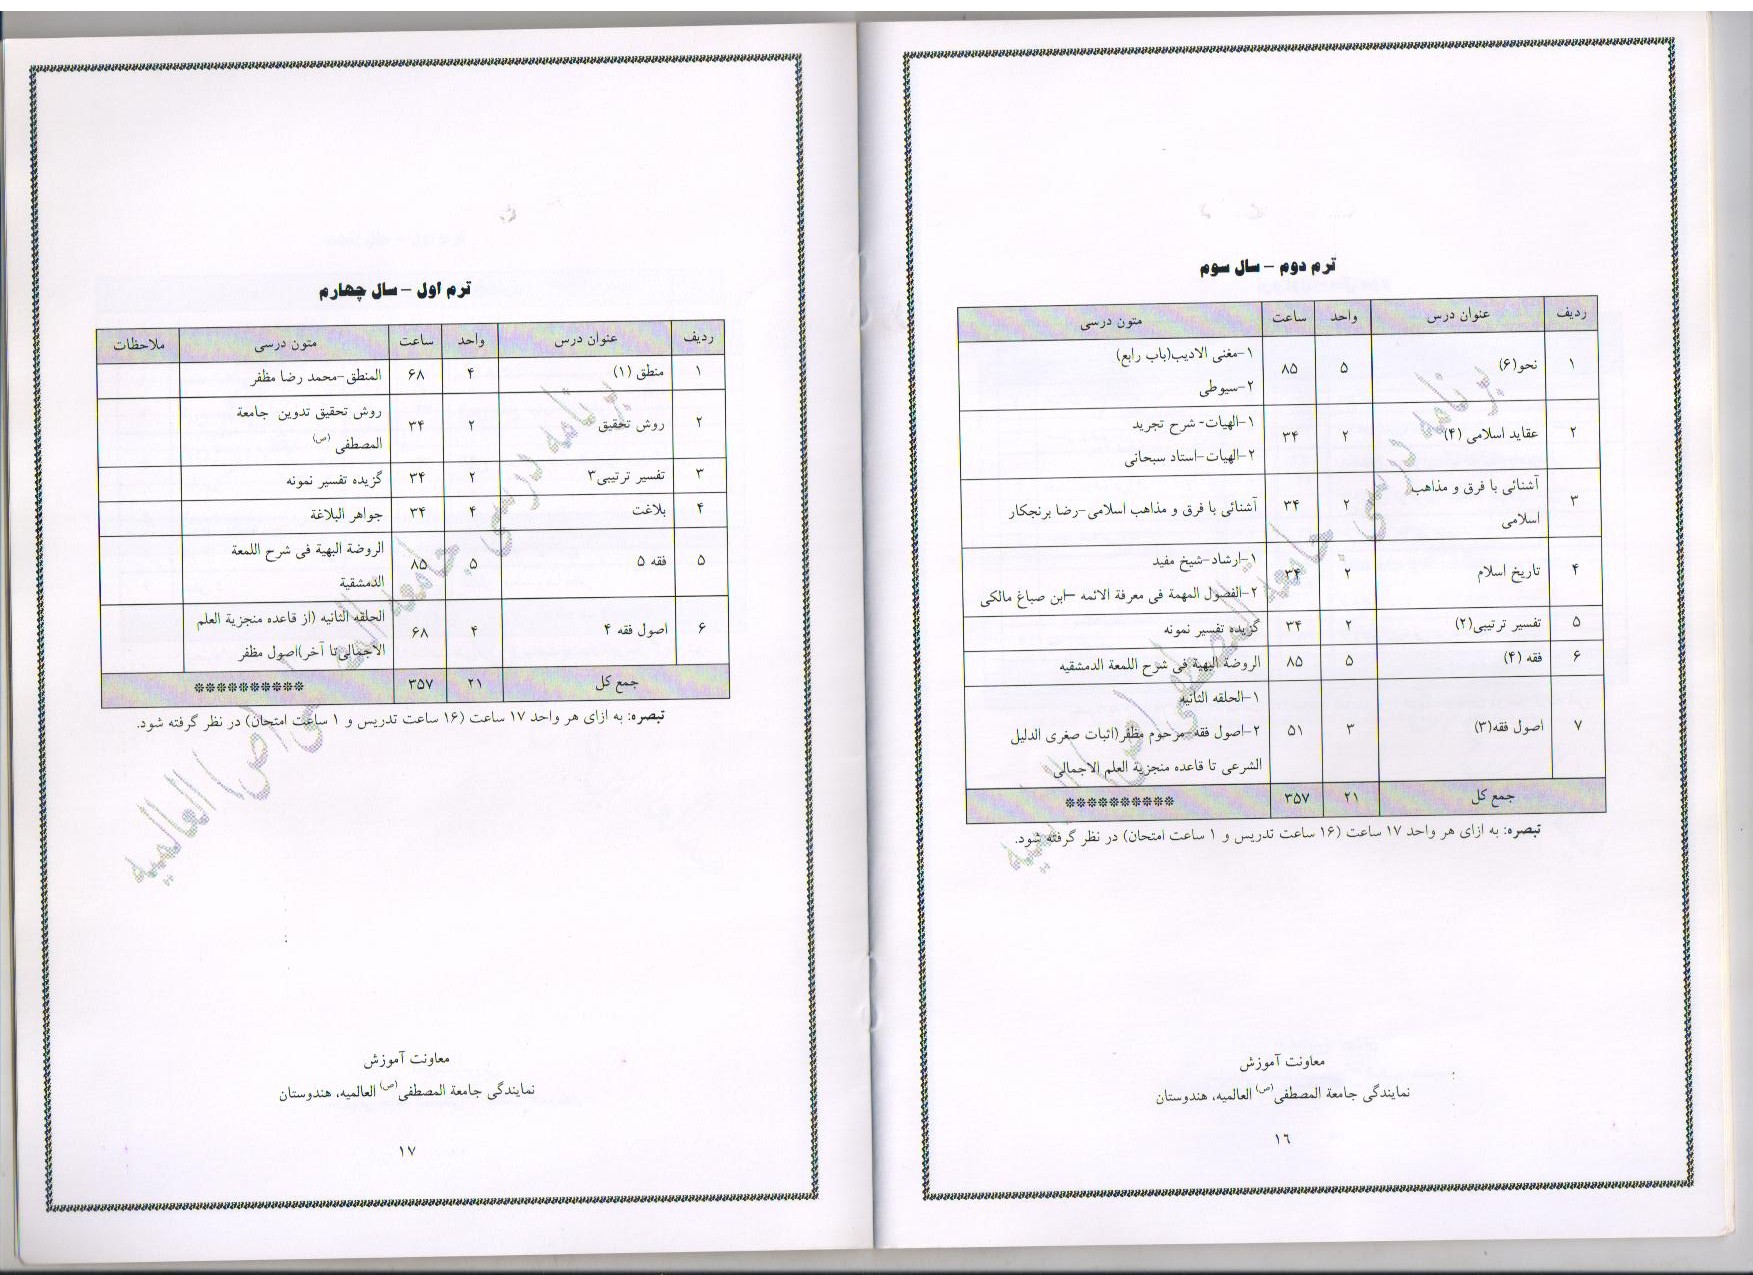 ترم دوم – سال سوم
ردیف عنوان درس واحد ساعت متون درسی
۱ نحو(۶) ۵ ۸۵ ۱-مغنی الادیب(باب رابع)
۲-سیوطی
۲ عقاید اسلامی (۴) ۲ ۳۴ ۱-الهیات- شرح تجرید
۲-الهیات-استاد سبحانی
۳ آشنائی با فرق و مذاهب اسلامی ۲ ۳۴ آشنائی با فرق و مذاهب اسلامی-رضا برنجکار
۴ تاریخ اسلام ۲ ۳۴ ۱-ارشاد-شیخ مفید
۲-الفصول المهمة فی معرفة الائمه –ابن صباغ مالکی
۵ تفسیر ترتیبی(۲) ۲ ۳۴ گزیده تفسیر نمونه
۶ فقه (۴) ۵ ۸۵ الروضة البهیة فی شرح اللمعة الدمشقیه
۷ اصول فقه(۳) ۳ ۵۱ ۱-الحلقه الثانیه
۲-اصول فقه مرحوم مظفر(اثبات صغری الدلیل
الشرعی تا قاعده منجزیة العلم الاجمالی
جمع کل ۲۱ ۳۵۷ **********
تبصره: به ازای هر واحد ۱۷ ساعت (۱۶ ساعت تدریس و ۱ ساعت امتحان) در نظر گرفته شود.
برنامه درسی جامعة المصطفی(ص) العالمیه
معاونت آموزش
نمایندگی جامعة المصطفی(ص) العالمیه، هندوستان
۱۶
ترم اول – سال چهارم
ردیف عنوان درس واحد ساعت متون درسی ملاحظات
۱ منطق (۱) ۴ ۶۸ المنطق-محمد رضا مظفر
۲ روش تحقیق ۲ ۳۴ روش تحقیق تدوین جامعة
المصطفی (ص)
۳ تفسیر ترتیبی۳ ۲ ۳۴ گزیده تفسیر نمونه
۴ بلاغت ۴ ۳۴ جواهر البلاغة
۵ فقه ۵ ۵ ۸۵ الروضة البهیة فی شرح اللمعة
الدمشقیة
۶ اصول فقه ۴ ۴ ۶۸ الحلقه الثانیه (از قاعده منجزیة العلم
الاجمالی تا آخر)اصول مظفر
جمع کل ۲۱ ۳۵۷ **********
تبصره: به ازای هر واحد ۱۷ ساعت (۱۶ ساعت تدریس و ۱ ساعت امتحان) در نظر گرفته شود.
برنامه درسی جامعة المصطفی(ص) العالمیه
معاونت آموزش
نمایندگی جامعة المصطفی(ص) العالمیه، هندوستان
۱۷